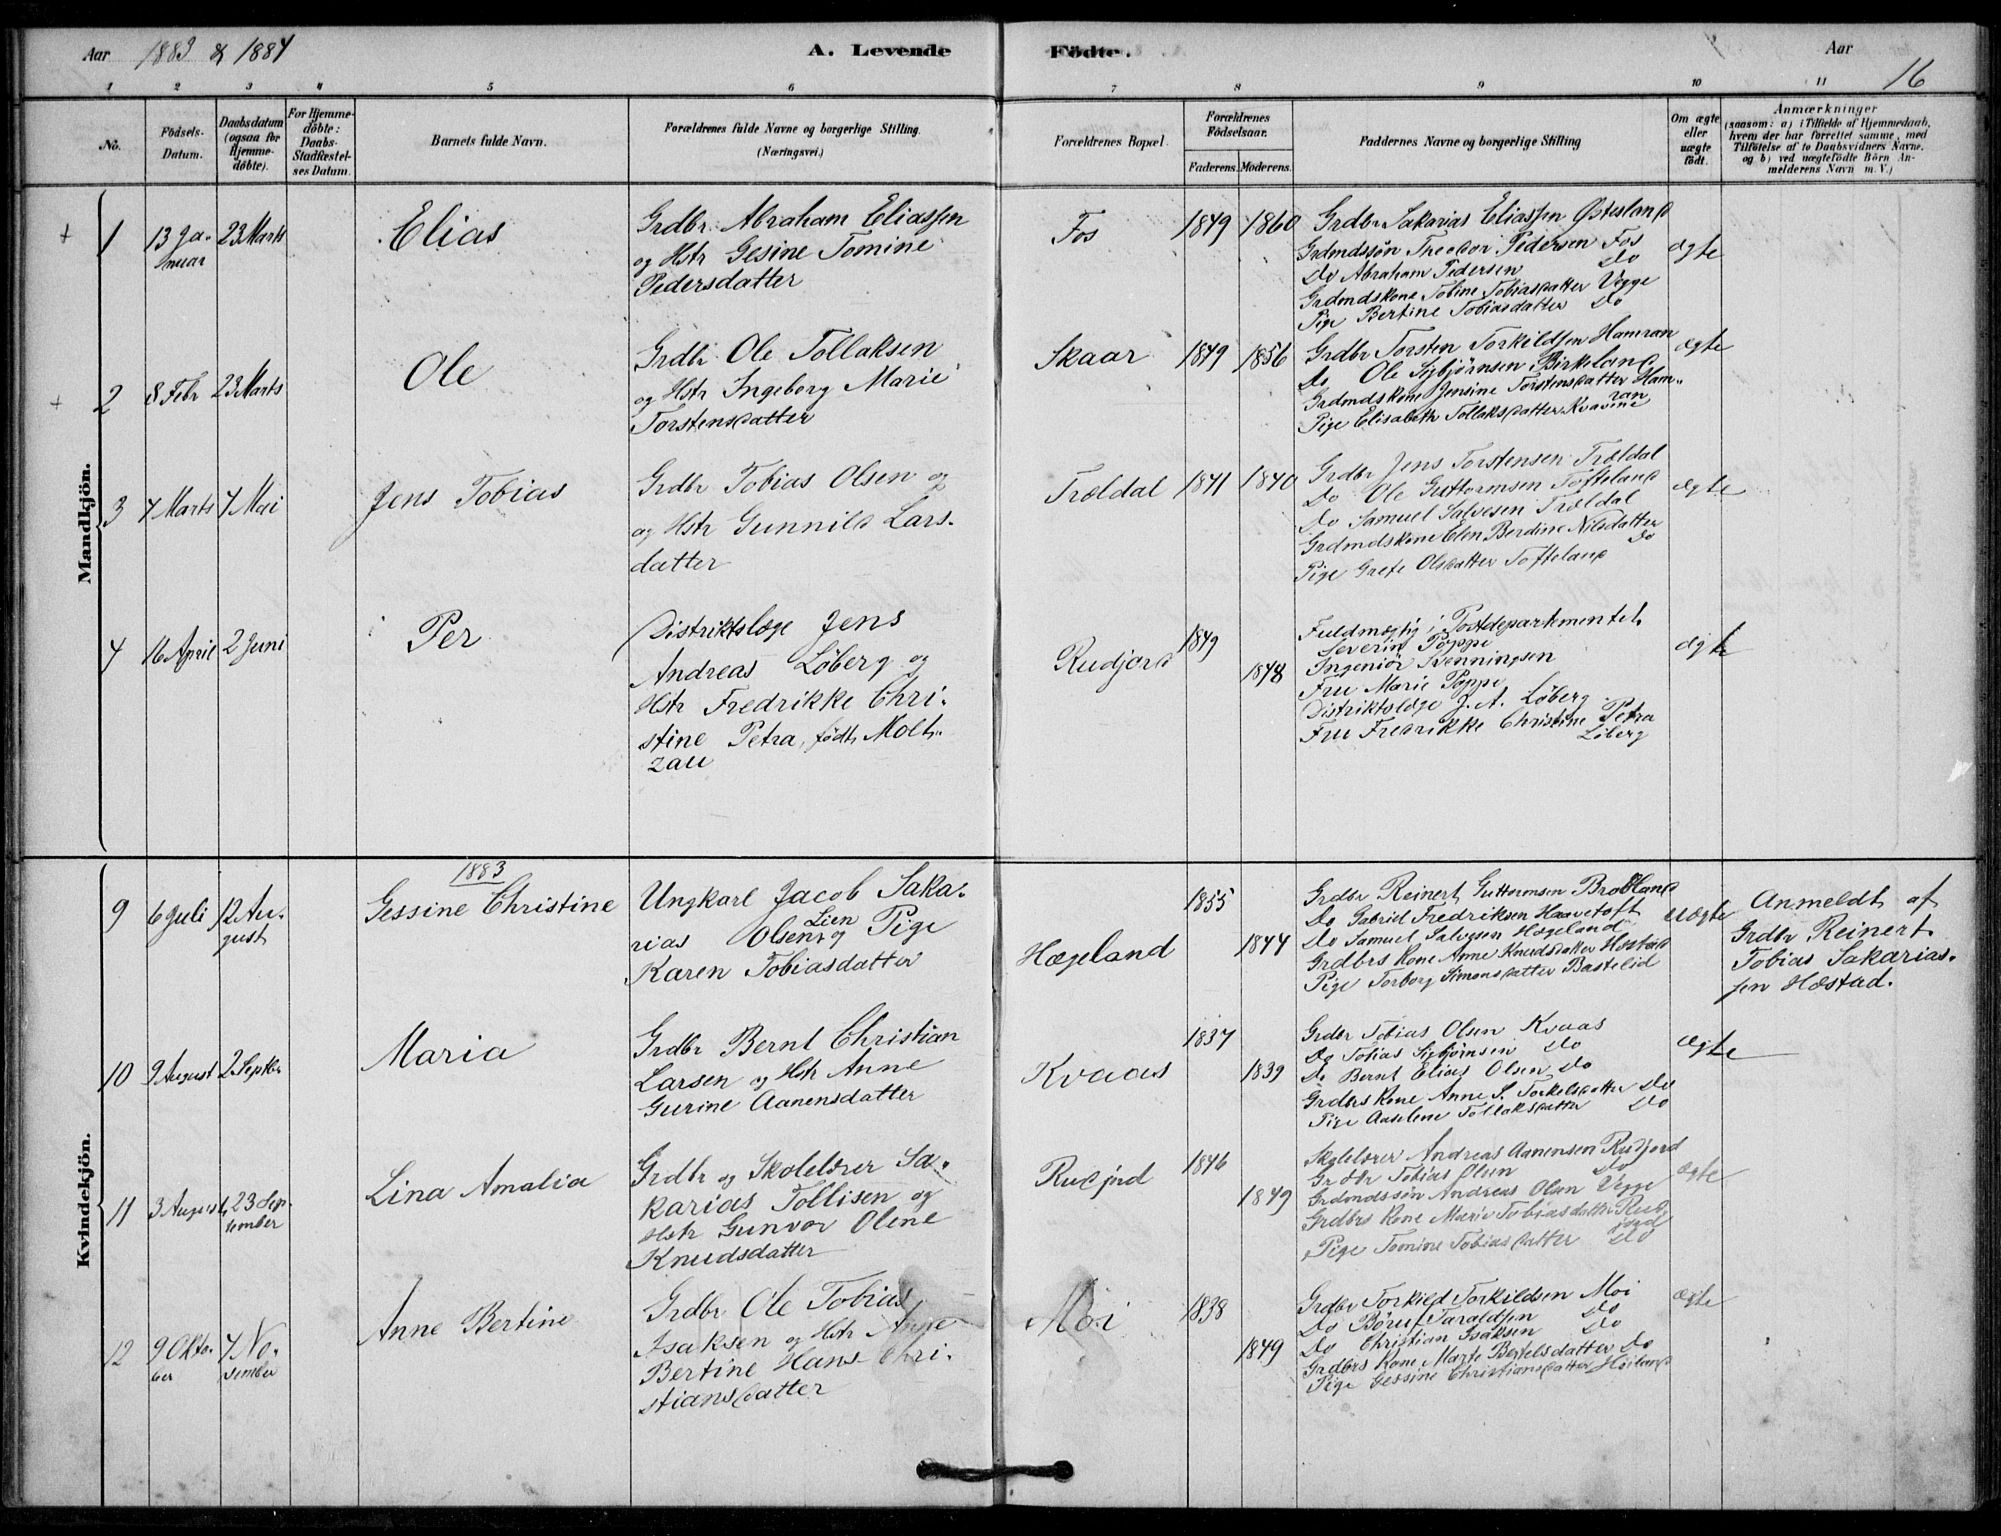 Aar 1883 & 1884 A. Levende Födte. Aar 16
1 2 3 4 5 6 7 8 9 10 11
No.
Födsels-
Datum.
Daabsdatum
(ogsaa for
Hjemme-
döbte).
For Hjemme-
döbte:
Daabs-
Stadfæstel-
ses Datum.
Barnets fulde Navn.
Forældrenes fulde Navne og borgerlige Stilling.
(Næringsvei.)
Forældrenes Bopæl.
Forældrenes
Födselsaar.
Faderens. Moderens.
Faddernes Navne og borgerlige Stilling
Om ægte
eller
uægte
födt.
Anmærkninger
(saasom: a) i Tilfælde af Hjemmedaab,
hvem der har forrettet samme, med
Tilföielse af to Daabsvidners Navne.
og b) ved uægtefödte Börn An-
melderens Navn m. V.)
Mandkjön.
1
13 Ja-
nuar
23 Marts
Elias
Grdbr. Abraham Eliassen
og Hstr Gesine Tomine
Pedersdatter
Fos
1849 1860
Grdbr Sakarias Eliassen Øitesland
Grdmdssøn Theodor Pedersen Fos
Do Abraham Pedersen Do
Grdmdskone Tobine Tobiasdatter Vegge
Pige Bertine Tobiasdatter Do
ægte
2
8 Febr
23 Marts
Ole
Grdbr Ole Tollaksen
og Hstr Ingeborg Marie
Torstensdatter
Skaar
1849 1856
Grdbr Torsten Torkildsen Hamran
Do Ole Sigbjørnsen Birkeland
Grdmdskone Jensine Torstensdatter Ham-
ran
Pige Elisabeth Tollaksdatter Kvavine
ægte
3
4 Marts
4 Mai
Jens Tobias
Grdbr Tobias Olsen og
og Hstr Gunnild Lars-
datter
Trældal
1841 1840
Grdbr Jens Torstensen Trældal
Do Ole Guttormsen Tofteland
Do Samuel Salvesen Trældal
Grdmdskone Elen Berdine Nilsdatter
Do
Pige Grete Olsdatter Tofteland
ægte
4
16 April
2 Juni
Per
Distriktslæge Jens
Andreas Løberg og
Hstr Fredrikke Chri-
stine Petra, født Molt-
zau
Rudjord
1849
1848
Fuldmægtig i Postdepartementet
Severin Poppe
Ingeniør Svenningsen
Fru Marie Poppe
Distriktslæge J. A. Løberg
Fru Fredrikke Christine Petra
Løberg
ægte
Kvindekjön.
1883
9
6 Juli
12 Au-
gust
Gessine Christine
Ungkarl Jacob Saka-
Lien
rias Olsen og Pige
Karen Tobiasdatter
Hægeland
1855
1844
Grdbr Reinert Guttormsen Brobland
Do Gabriel Fredriksen Haavetoft
Do Samuel Salvesen Hægeland
Grdbrs Kone Anne Knudsdatter Hæstad
Pige Torborg Simonsdatter Bastelid
uægte
Anmeldt af
Grdbr Reinert
Tobias Sakarias-
sen Hæstad.
10
9 August
2 Septbr
Maria
Grdbr Bernt Christian
Larsen og Hstr Anne
Gurine Aanensdatter
Kvaas
1837
1839
Grdbr Tobias Olsen Kvaas
Do Tobias Sigbjørnsen Do
Do Bernt Elias Olsen Do
Grdbrs Kone Anne S. Torkelsdatter Do
Pige Aaselene Tollaksdatter Do
ægte
11
3 August
23 Sep-
tember
Lina Amalia
Grdbr og Skolelærer Sa-
karias Tollisen og
Hstr Gunvor Olene
Knudsdatter
Rudjord
1846
1849
Skolelærer Andreas Aanensen Rudjord
Grdbr Tobias Olsen Do
Grdmdssøn Andreas Olsen Vegge
Grdbrs Kone Marie Tobiasdatter Rud-
jord
Pige Tomine Tobiasdatter Do
ægte
12
9 Okto-
ber
4 No-
vember
Anne Bertine
Grdbr Ole Tobias
Isaksen og Hstr Anne
Bertine Hans Chri-
stiansdatter
Moi
1838
1849
Grdbr Torkild Torkildsen Moi
Do Børuf Taraldsen Do
Do Christian Isaksen Do
Grdbrs Kone Marte Bertelsdatter Do
Pige Gessine Christiansdatter Høiland
ægte